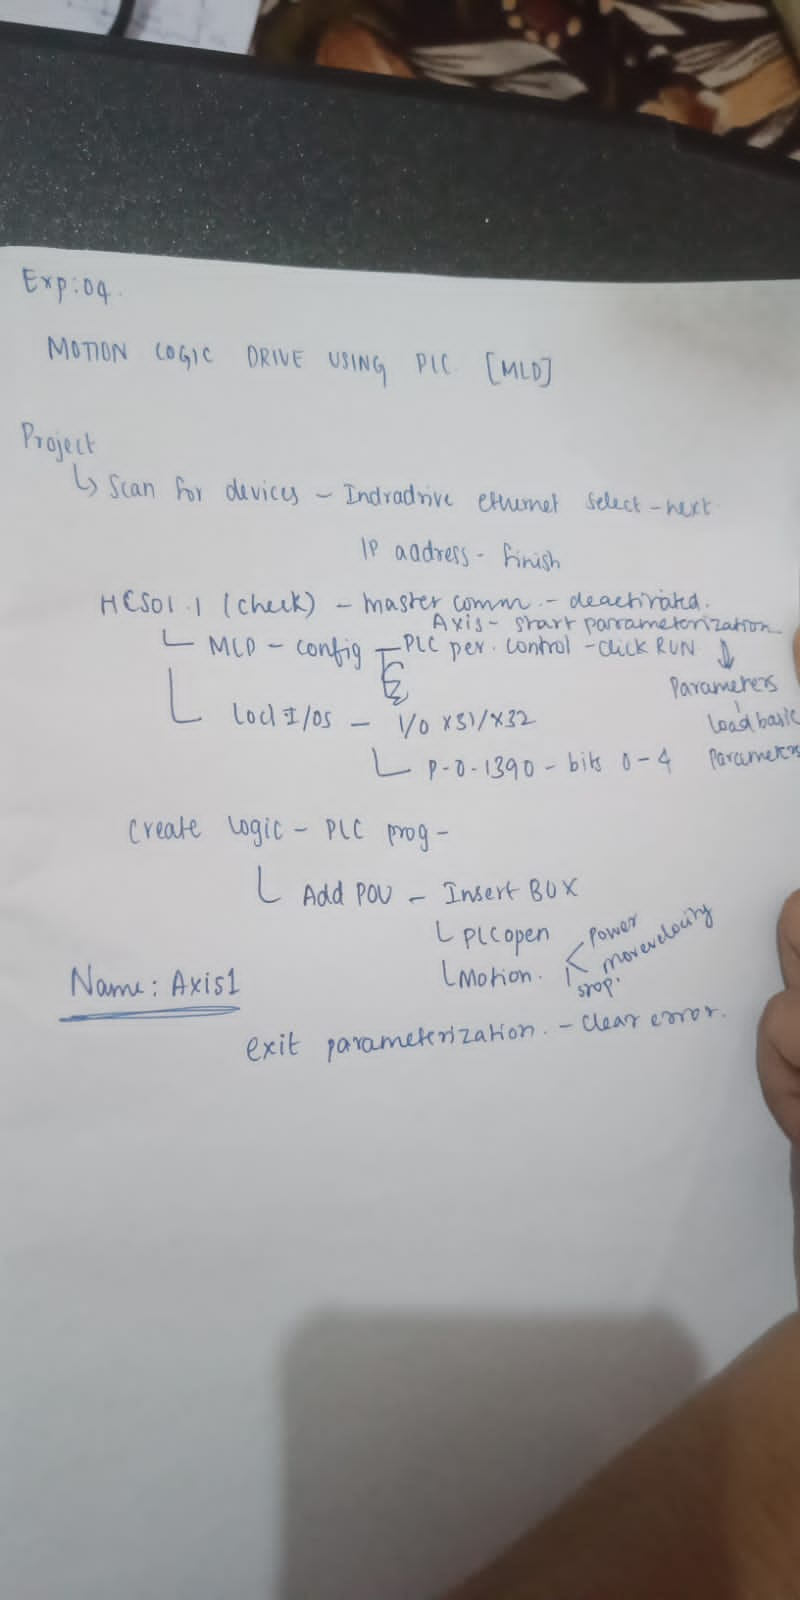 Exp:04.
MOTION LOGIC DRIVE USING PLC. [MLD]
Project
↳ Scan for devices - Indradrive ethernet select - next
IP address - finish
HCS01.1 (check) - master comm. - deactivated.
Axis - start parameterization
└ MLD - config - PLC per. control - click RUN
Parameters
Load basic
Parameters
└ Locl I/Os - I/O X31/X32
└ P-0-1390 - bits 0-4
Create Logic - PLC prog -
└ Add POU - Insert BOX
└ PLCopen
└ Motion.
Power
movevelocity
stop.
Name: Axis1
exit parameterization. - clear error.